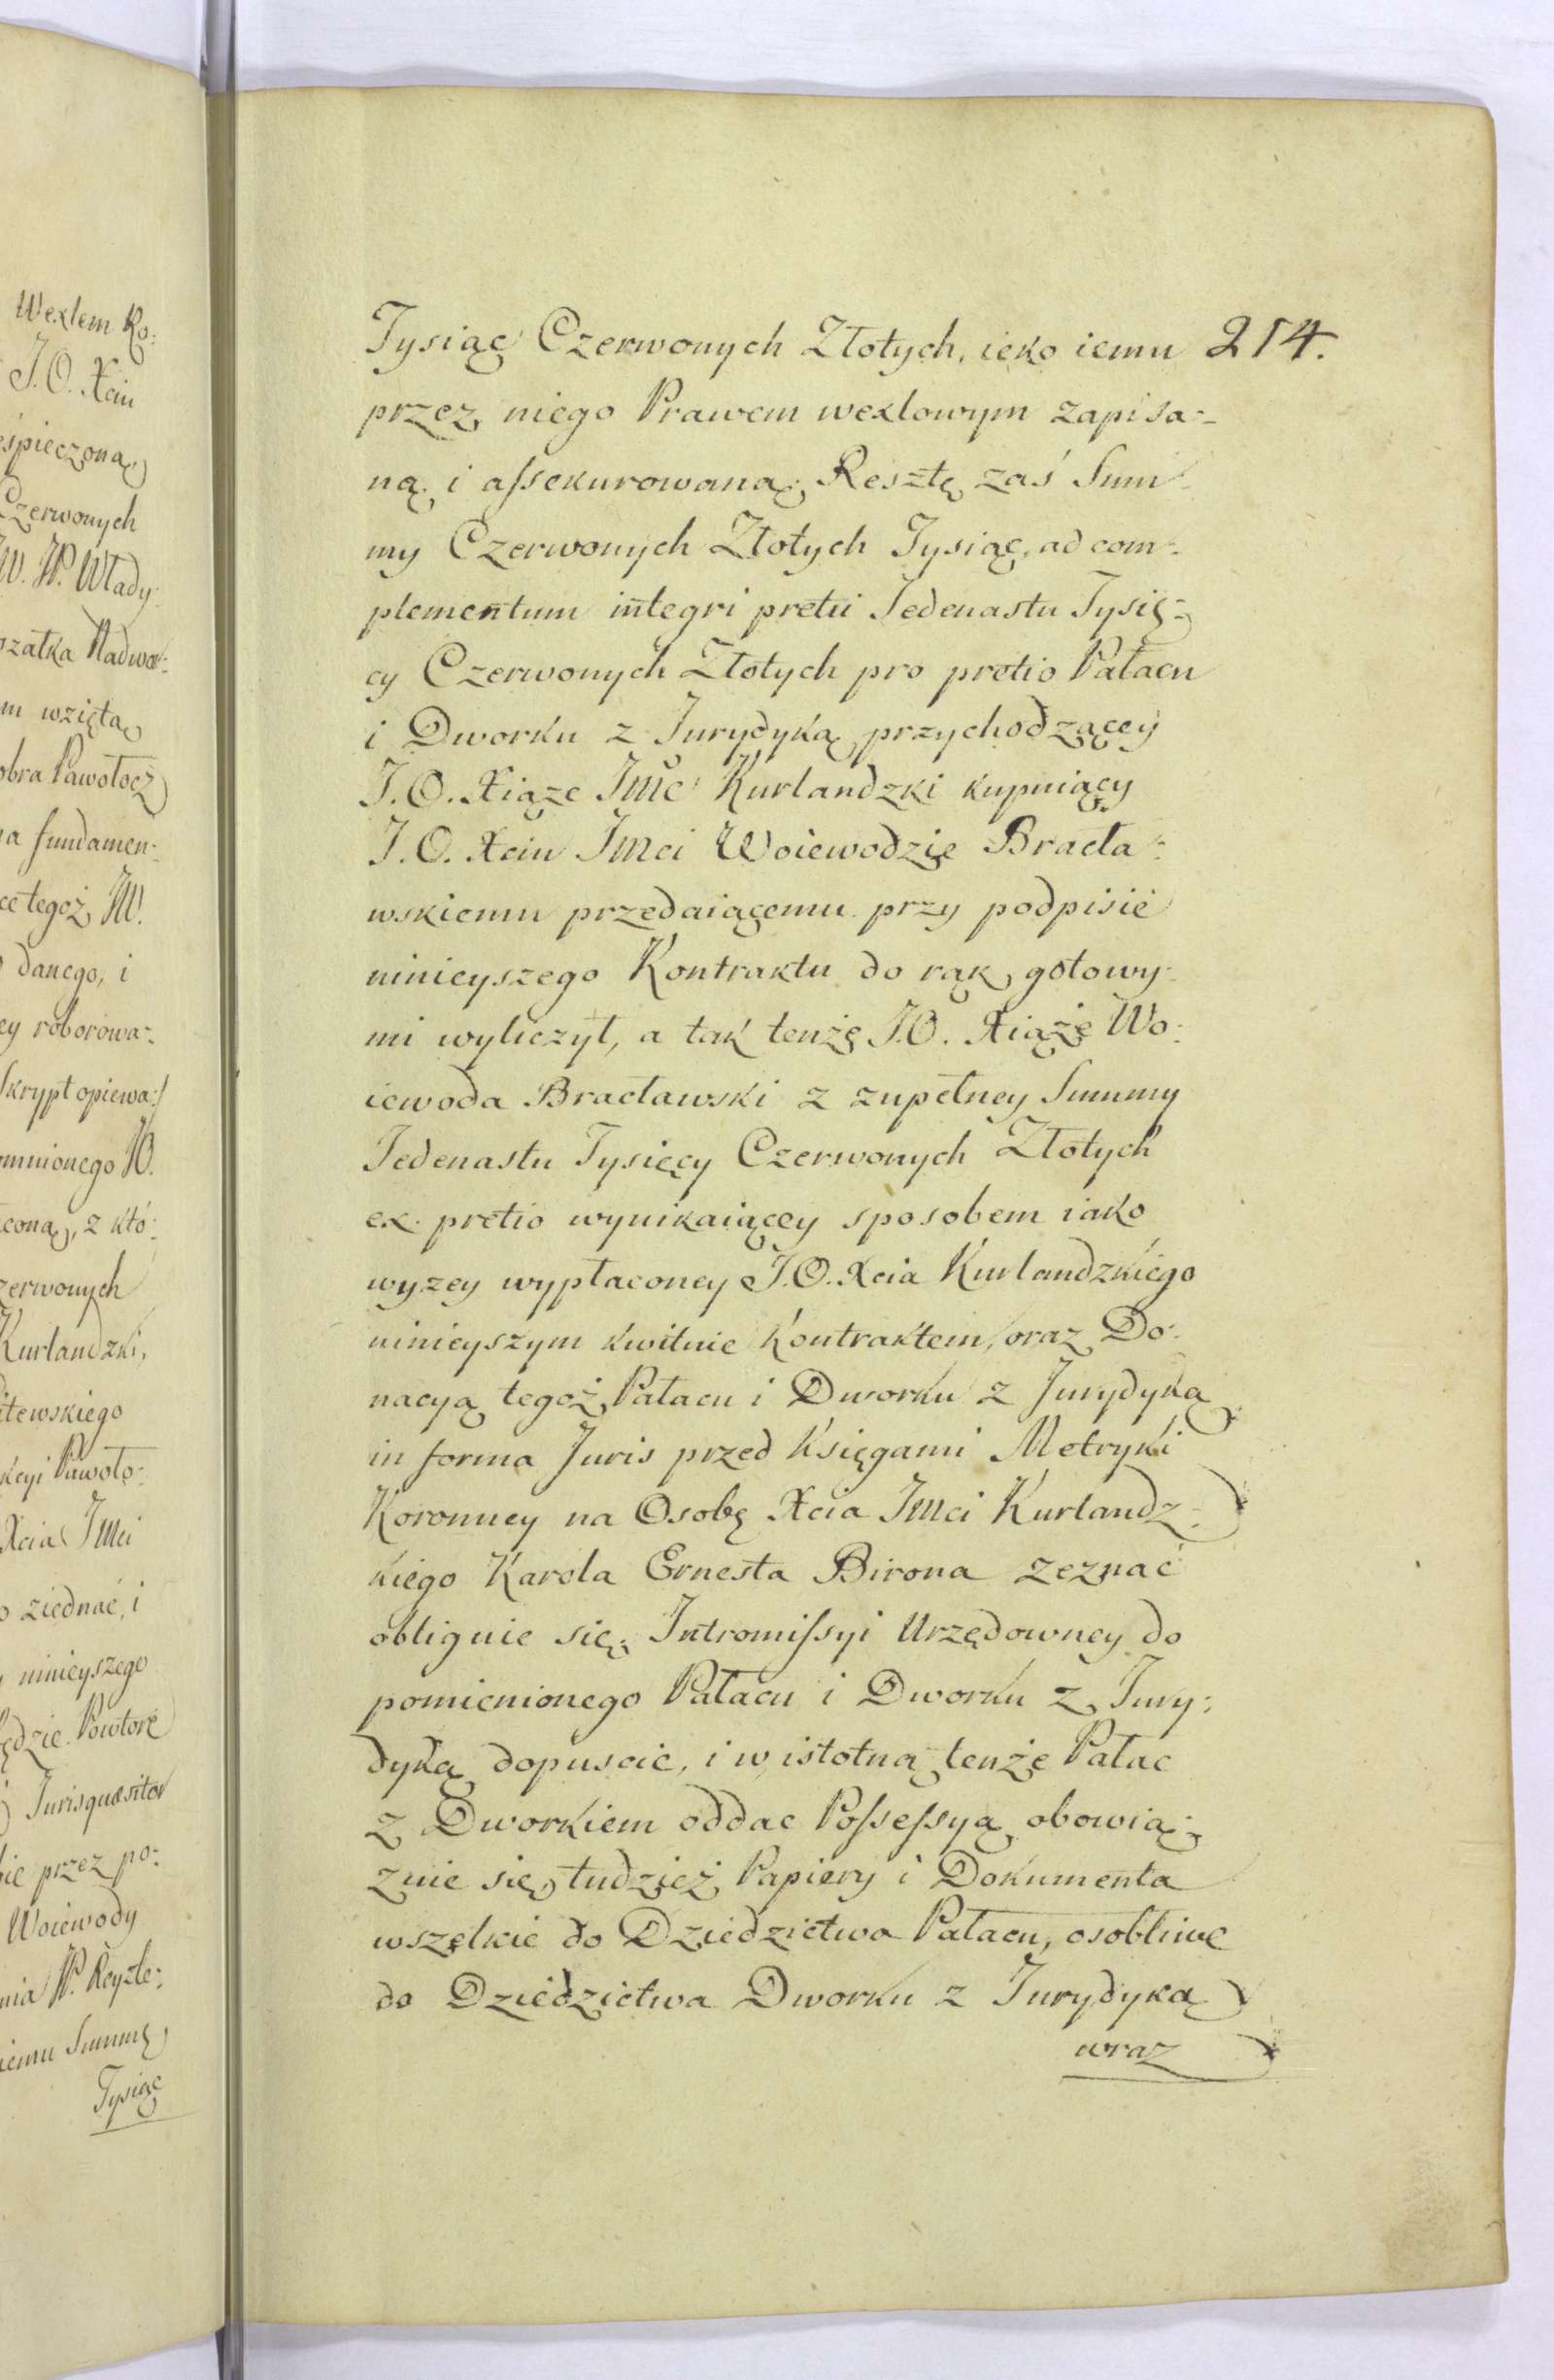 Wexlem Ko:
J. O. Xciu
eśpieczoną
Czerwonych
JW. JP. Włady:
szałka Nadwor:
m wziętą
obra Pawołocz
a fundamen:
ce tegoż JW.
danego, i
ey roborowa:
skrypt opiewa:/
omnionego JO.
coną, z któ:
zerwonych
Kurlandzki,
itewskiego
kcyi Pawoło:
Xcia Jmci
o ziednać, i
ninieyszego
ędzie. Powtore
Jurisquæsitor
ie przez po:
Woiewody
nia JP. Reyzle:
iemu Summę
Tysiąc
Tysiąc Czerwonych Złotych, ieko iemu 214.
przez niego Prawem wexlowym zapisa:
ną i assekurowaną; Resztę zaś Sum
my Czerwonych Złotych Tysiąc, ad com:
plementum integri pretii Jedenastu Tysię:
cy Czerwonych Złotych pro pretio Pałacu
i Dworku z Jurydyką przychodzącey
J. O. Xiąze Jmc Kurlandzki kupuiący
J. O. Xciu Jmci Woiewodzie Bracła:
wskiemu przedaiącemu przy podpisie
ninieyszego Kontraktu do rąk gotowy:
mi wyliczył, a tak tenże J.O. Xiąże Wo:
iewoda Bracławski z zupełney Summy
Jedenastu Tysięcy Czerwonych Złotych
ex pretio wynikaiącey sposobem iako
wyzey wypłaconey J.O. Xcia Kurlandzkiego
ninieyszym kwituie Kontraktem, oraz Do:
nacyą tegoż Pałacu i Dworku z Jurydyką
in forma Juris przed Księgami Metryki
Koronney na Osobę Xcia Jmci Kurlandz:
kiego Karola Ernesta Birona zeznać
obliguie się; Intromissyi Urzędowney do
pomienionego Pałacu i Dworku z Jury:
dyką dopuscić, i w istotną tenże Pałac
z Dworkiem oddac Possessyą obowią:
zuie się, tudzież Papiery i Dokumenta
wszelkie do Dziedzictwa Pałacu, osobliwe
do Dziedzictwa Dworku z Jurydyką
wraz